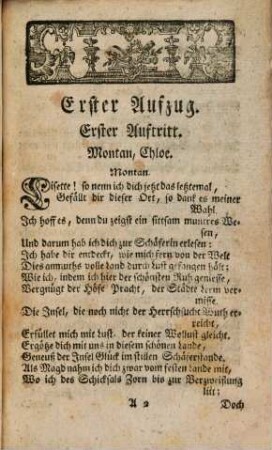 Erster Aufzug.
Erster Auftritt.
Montan, Chloe.
Montan.
Lisette! so nenn ich dich jetzt das letztemal,
Gefällt dir dieser Ort, so dank es meiner
Wahl.
Ich hoff es, denn du zeigst ein sittsam muntres We-
sen,
Und darum hab ich dich zur Schäferin erlesen:
Ich habe dir entdeckt, wie mich fern von der Welt
Dies anmuths volle land durch lust gefangen hält;
Wie ich, indem ich hier der schönsten Ruh geniesse,
Vergnügt der Höfe Pracht, der Städte lerm ver-
misse.
Die Insel, die noch nicht der Herrschsucht Wuth er-
reicht,
Erfüllet mich mit lust. der keiner Wollust gleicht.
Ergötze dich mit uns in diesem schönen lande,
Geneuß der Insel Glück im stillen Schäferstande.
Als Magd nahm ich dich zwar vom festen lande mit,
Wo ich des Schicksals Zorn bis zur Verzweiflung
litt:
A 2
Doch